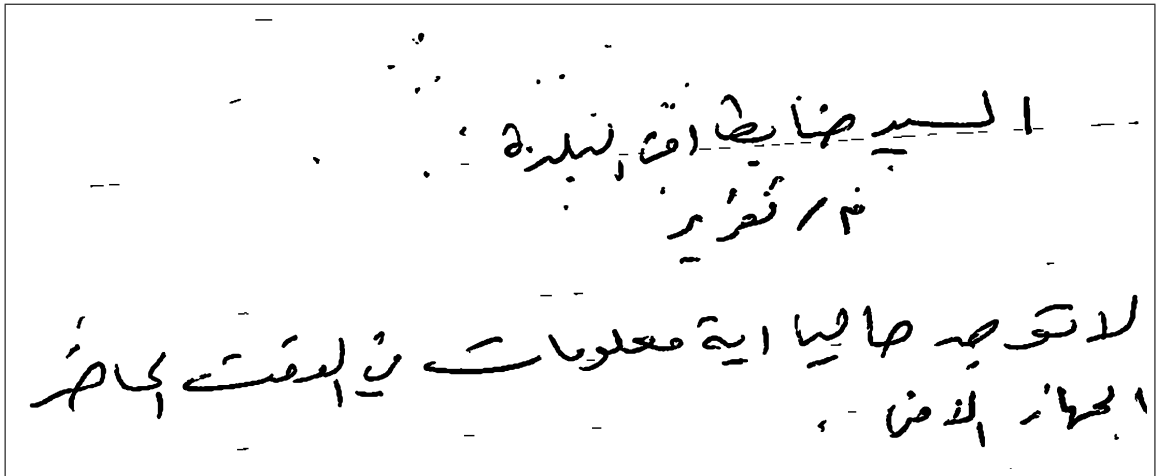 السيد ضابط امن البلدة
م / تقرير
لا توجد حاليا اية معلومات في الوقت الحاضر
الجهاز الأمن .